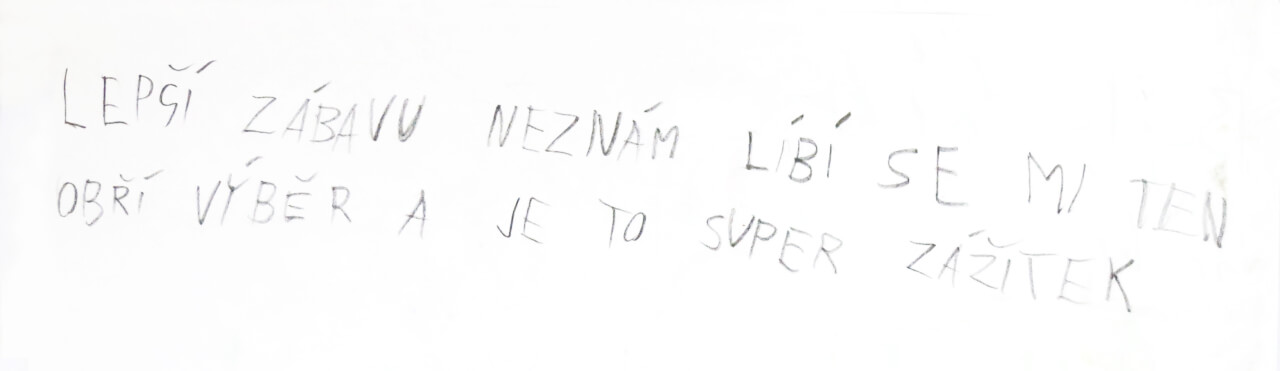 LEPŠÍ ZÁBAVU NEZNÁM LÍBÍ SE MI TEN
OBŘÍ VÝBĚR A JE TO SUPER ZÁŽITEK